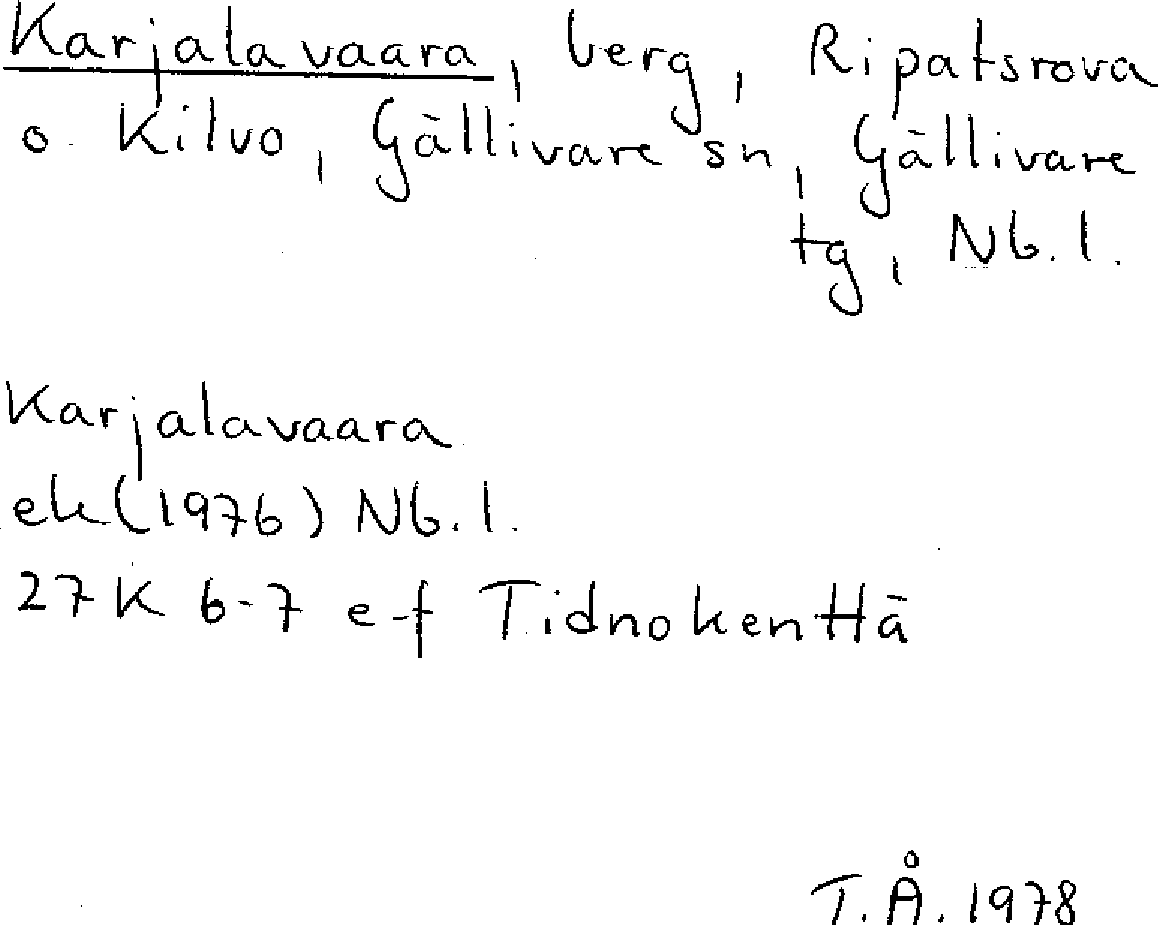 Karjalavaara, berg, Ripatsrova
o. Kilvo, Gällivare sn, Gällivare
tg, Nb. l.
Karjalavaara
ek (1976) Nb. l.
27K 6-7 e-f Tidnokenttä
T. Å. 1978